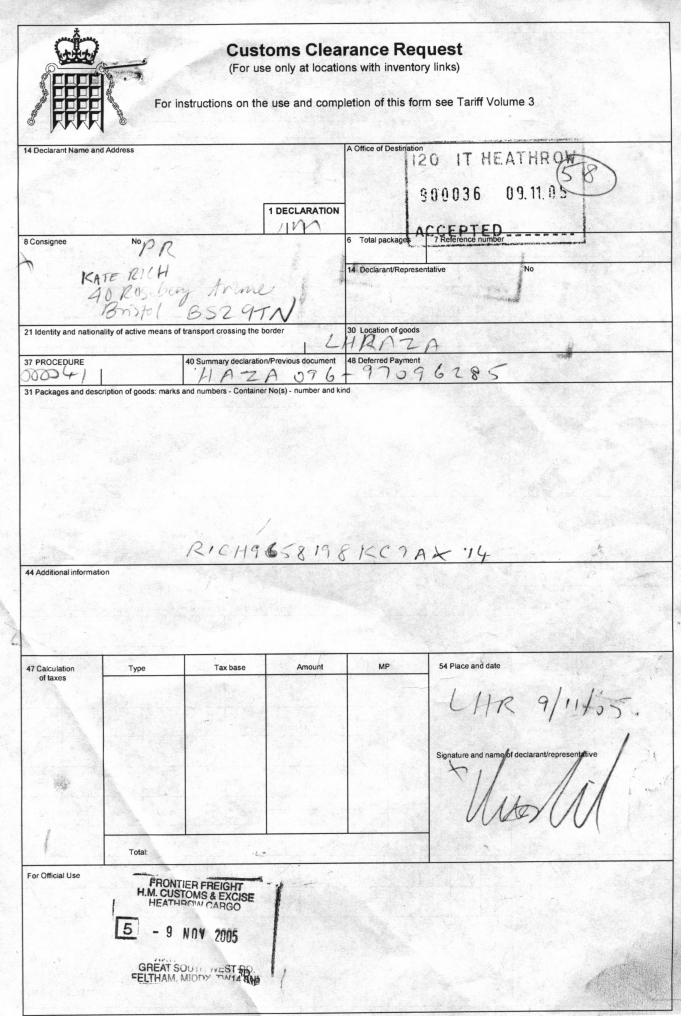 Customs Clearance Request
(For use only at locations with inventory links)
For instructions on the use and completion of this form see Tariff Volume 3
14 Declarant Name and Address
A Office of Destination
120 IT HEATHROW
58
900036 09.11.05
ACCEPTED
1 DECLARATION
IM
8 Consignee
No PR
KATE RICH
40 Rosebery Avenue
Bristol BS2 9TN
6 Total packages
7 Reference number
14 Declarant/Representative No
21 Identity and nationality of active means of transport crossing the border
30 Location of goods
LHRAZA
37 PROCEDURE
000041
40 Summary declaration/Previous document
48 Deferred Payment
HAZA 096-97096285
31 Packages and description of goods: marks and numbers - Container No(s) - number and kind
RICH9658198KC7AX '14
44 Additional information
47 Calculation of taxes
Type
Tax base
Amount
MP
Total:
54 Place and date
LHR 9/11/05.
Signature and name of declarant/representative
X
For Official Use
FRONTIER FREIGHT
H.M. CUSTOMS & EXCISE
HEATHROW CARGO
5 - 9 NOV 2005
GREAT SOUTH WEST RD.
FELTHAM, MIDDX. TW14